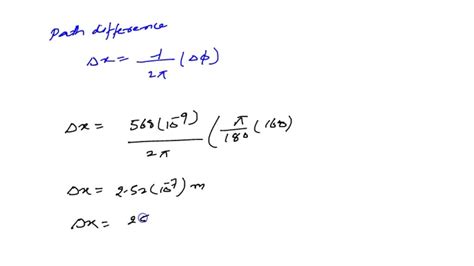 Path difference
Δx = 1/2π (Δϕ)
Δx = 568(10⁻⁹)/2π (π/180 (160)
Δx = 2.52(10⁻⁷) m
Δx = 25